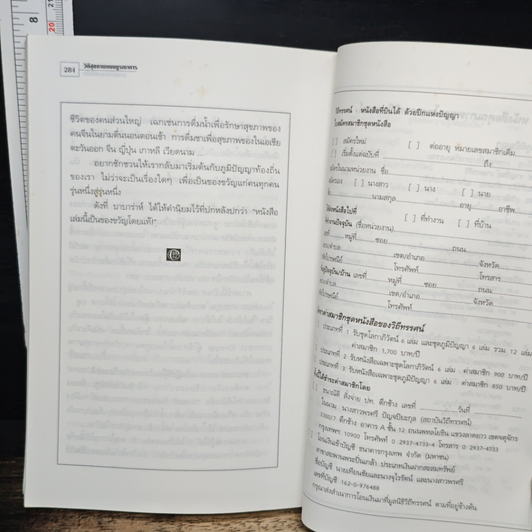 284
วิถีสุขภาพบนฐานอาหาร
ชีวิตของคนส่วนใหญ่ เฉกเช่นการดื่มน้ำเพื่อรักษาสุขภาพของ
คนจีนในยามตื่นนอนตอนเช้า การดื่มชาเพื่อสุขภาพของในเอเชีย
ตะวันออก จีน ญี่ปุ่น เกาหลี เวียดนาม ...
อยากชักชวนให้เรากลับมาเริ่มต้นกับภูมิปัญญาท้องถิ่น
ของเรา ไม่ว่าจะเป็นเรื่องใดๆ เพื่อเป็นของขวัญแก่คนทุกคน
รุ่นหนึ่งสู่รุ่นหนึ่ง
ดังที่ บาบาร่าห์ ได้ให้คำนิยมไว้ที่ปกหลังปกว่า "หนังสือ
เล่มนี้เป็นของขวัญโดยแท้!"
วิถีทรรศน์ : หนังสือที่บินได้ ด้วยปีกแห่งปัญญา
ใบสมัครสมาชิกชุดหนังสือ
[ ] สมัครใหม่ [ ] ต่ออายุ หมายเลขสมาชิกเดิม
[ ] เริ่มตั้งแต่ฉบับที่ ถึง
สมัครในนามหน่วยงาน ชื่อ
[ ] นางสาว [ ] นาง [ ] นาย
นามสกุล อายุ อาชีพ
หนังสือไปที่ [ ] ที่ทำงาน [ ] ที่บ้าน
ปัจจุบัน (ชื่อหน่วยงาน)
หมู่ที่ ซอย ถนน
เขต/อำเภอ จังหวัด
รหัสไปรษณีย์ โทรศัพท์ โทรสาร
ปัจจุบัน/บ้าน เลขที่ หมู่ที่ ซอย ถนน
เขต/อำเภอ จังหวัด
รหัสไปรษณีย์ โทรศัพท์
ค่าสมาชิกชุดหนังสือของวิถีทรรศน์
ประเภทที่ 1 รับชุดโลกาภิวัตน์ 6 เล่ม และชุดภูมิปัญญา 6 เล่ม รวม 12 เล่ม
ค่าสมาชิก 1,700 บาท/ปี
ประเภทที่ 2 รับหนังสือเฉพาะชุดโลกาภิวัตน์ 6 เล่ม ค่าสมาชิก 900 บาท/ปี
ประเภทที่ 3 รับหนังสือเฉพาะชุดภูมิปัญญา 6 เล่ม ค่าสมาชิก 850 บาท/ปี
ได้ชำระค่าสมาชิกโดย
ธนาณัติ สั่งจ่าย ปท. ตึกช้าง เลขที่ วันที่
ในนาม นางสาวพรศรี ปัญจปิยะกุล (สถาบันวิถีทรรศน์)
ตึกช้าง อาคาร A ชั้น 12 ถนนพหลโยธิน แขวงลาดยาว เขตจตุจักร
กรุงเทพฯ 10900 โทรศัพท์ 0 2937-4733-4 โทรสาร 0 2937-4733
โอนเงินเข้าบัญชี ธนาคารกรุงเทพ จำกัด (มหาชน)
สาขาสะพานพระปิ่นเกล้า ประเภทเงินฝากสะสมทรัพย์
ชื่อบัญชี นายเทียนชัยและนางจุไรรัตน์ และนางสาวพรศรี
เลขที่บัญชี 162-0-976488
กรุณาส่งสำเนาการโอนเงินมาที่มูลนิธิวิถีทรรศน์ ตามที่อยู่ข้างต้น